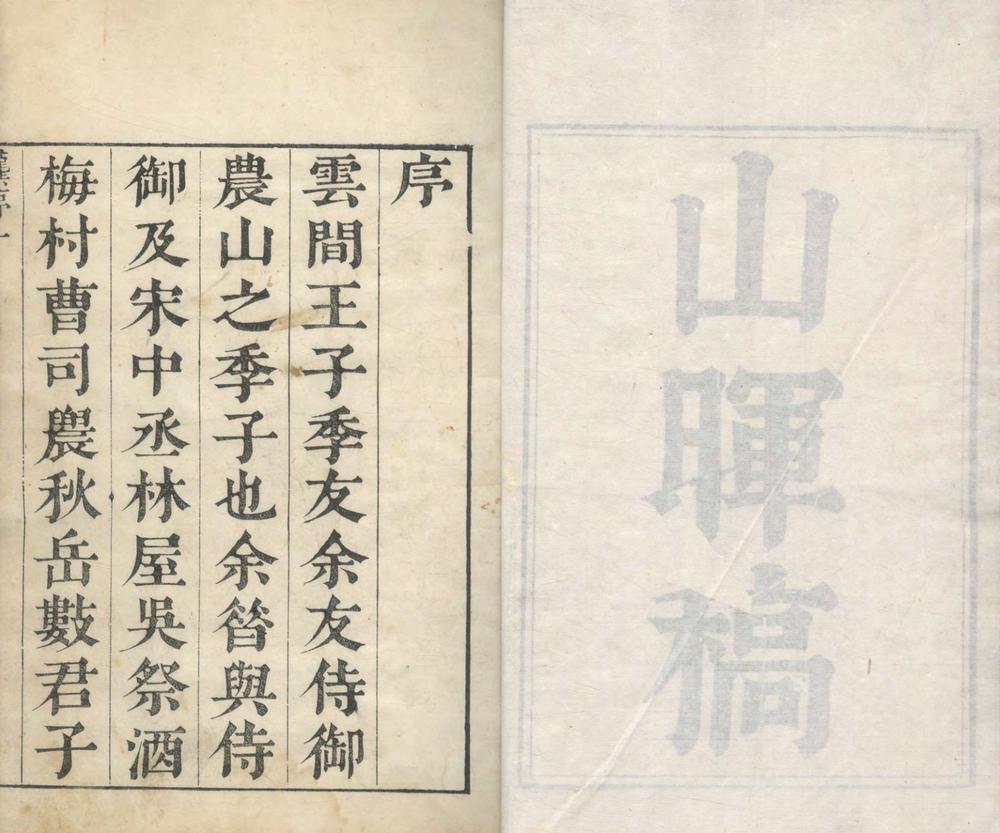 山暉稿
序
雲間王子季友余友侍御
農山之季子也余㫺與侍
御及宋中丞林屋吳祭酒
梅村曹司農秋岳數君子
序一